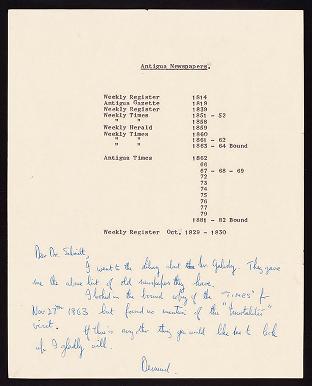 Antigua Newspapers.
Weekly Register 1814
Antigua Gazette 1819
Weekly Register 1839
Weekly Times 1851 - 52
" " 1858
Weekly Herald 1859
Weekly Times 1860
" " 1861 - 62
" " 1863 - 64 Bound
Antigua Times 1862
66
67 - 68 - 69
72
73
74
75
76
77
79
1881 - 82 Bound
Weekly Register Oct. 1829 - 1830
Dear Dr.
I went to the library about the They gave
me the above list of old newspapers they have.
I looked in the bound copy of the "TIMES" for
Nov 27th 1863 but found no mention of the
visit. If there is any other thing you would like me to look
up I gladly will.
Desmond.